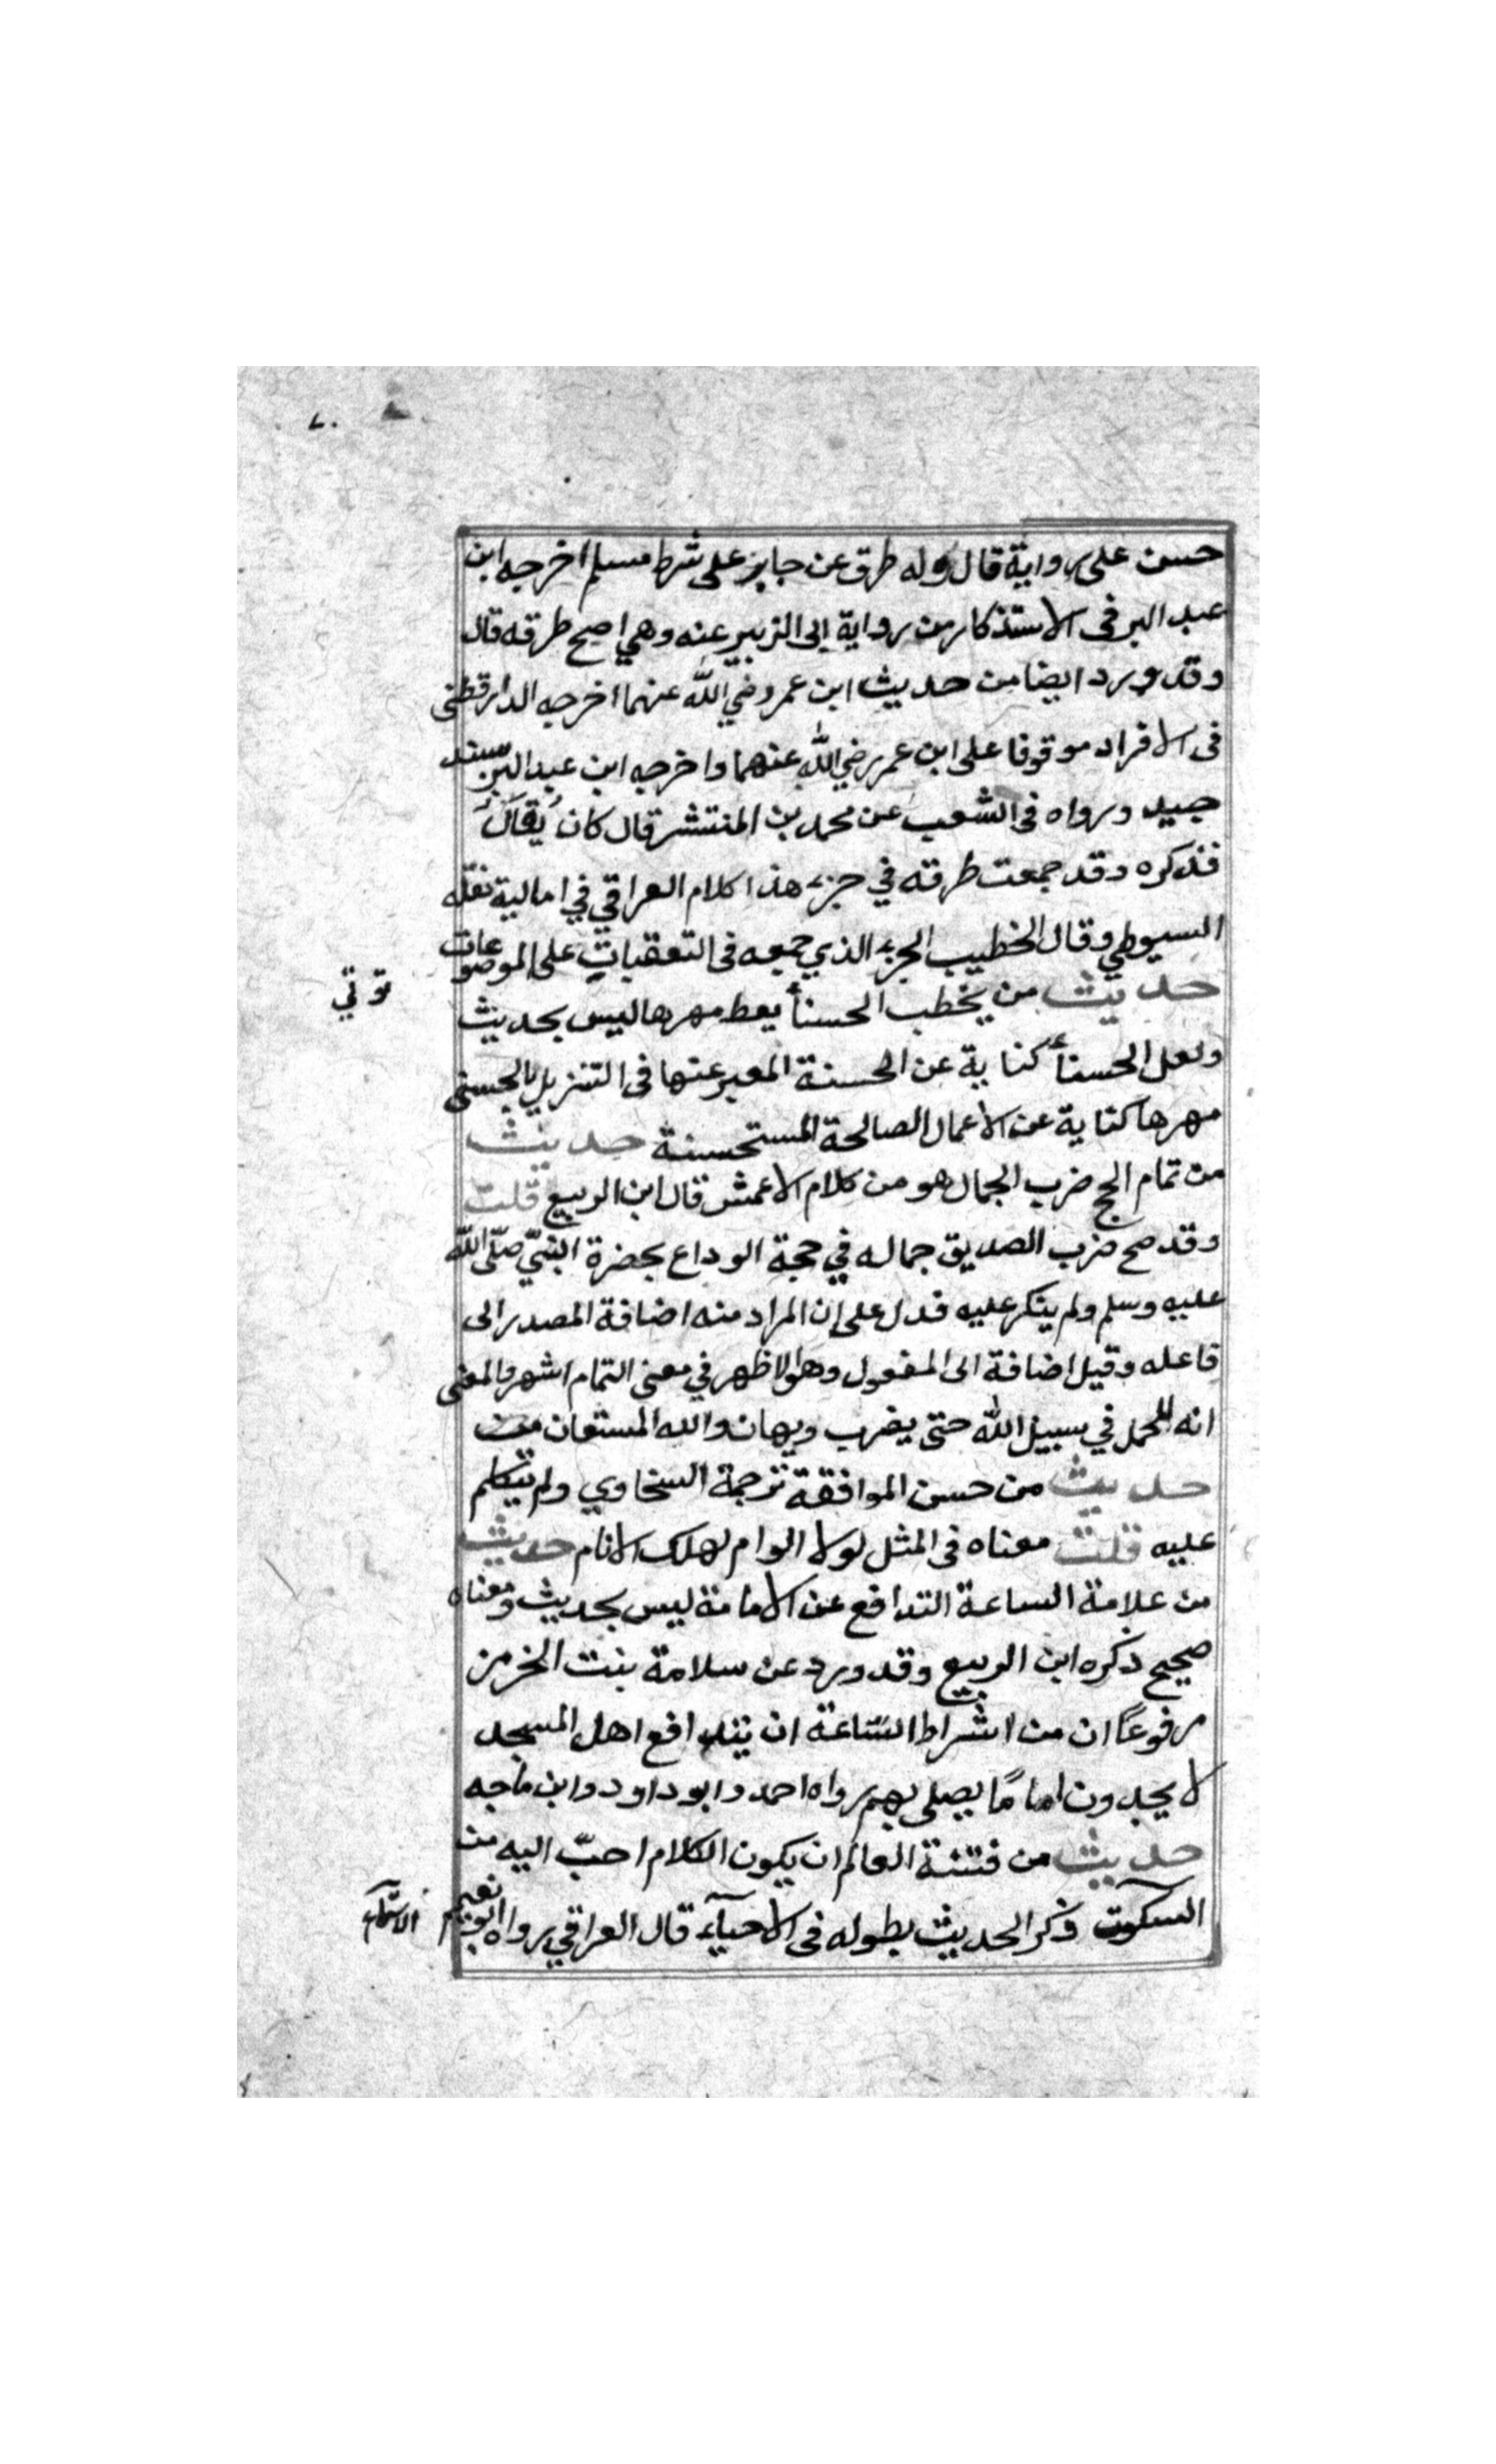 ٧٠
حسن على رواية قال وله طرق عن جابر على شرط مسلم اخرجه ابن
عبد البر فى الاستذكار من رواية ابى الزبير عنه وهي اصح طرقه قال
وقد ورد ايضا من حديث ابن عمر رضي الله عنهما اخرجه الدارقطنى
فى الافراد موقوفا على ابن عمر رضي الله عنهما واخرجه ابن عبد البر بسند
جيد ورواه فى الشعب عن محمد بن المنتشر قال كان يُقال
فذكره وقد جمعت طرقه في جزء هذا كلام العراقي في امالية نقله
السيوطي وقال الخطيب الجزء الذي جمعه فى التعقبات على الموضوعات
حديث من يخطب الحسنأ يعط مهرها ليس بحديث
ولعل الحسنأ كناية عن الحسنة المعبر عنها فى التنزيل بالحسنى
مهرها كناية عن الاعمال الصالحة المستحسنة حديث
من تمام الحج ضرب الجمال هو من كلام الاعمش قال ابن الربيع قلت
وقد صح ضرب الصديق جماله في حجة الوداع بحضرة النبيّ صلّى الله
عليه وسلم ولم ينكر عليه فدل على ان المراد منه اضافة المصدر الى
فاعله وقيل اضافة الى المفعول وهو الاظهر في معنى التمام اشهر والمعنى
انه للحمل في سبيل الله حتى يضرب ويهان والله المستعان
حديث من حسن الموافقة ترجمة السخاوي ولم يتكلم
عليه قلت معناه فى المثل لولا الوام لهلك الانام حديث
من علامة الساعة التدافع عن الامامة ليس بحديث ومعناه
صحيح ذكره ابن الربيع وقد ورد عن سلامة بنت الخرمن
مرفوعًا ان من اشراط الساعة ان يتدافع اهل المسجد
لا يجدون امامًا يصلى بهم رواه احمد وابو داود وابن ماجه
حديث من فتنة العالم ان يكون الكلام احبّ اليه من
السكوت وذكر الحديث بطوله فى الاحيآء قال العراقي رواه ابو نعيم